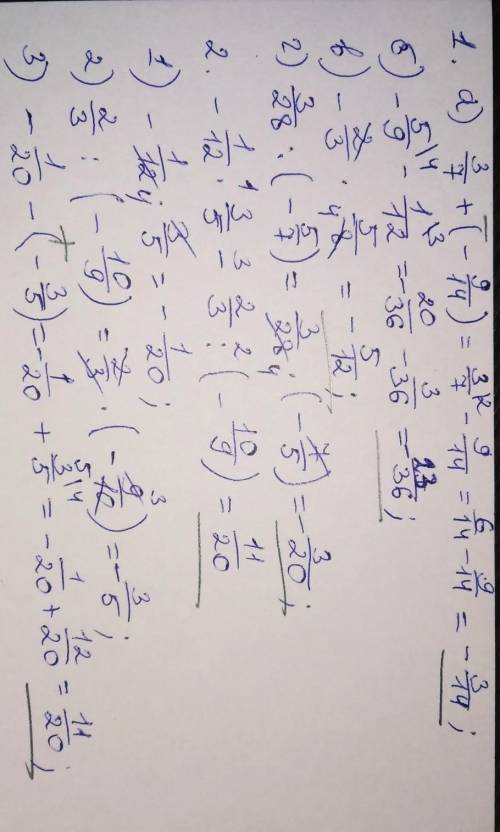 1. а) 3/7 + (- 9/14) = 3\2/7 - 9/14 = 6/14 - 9/14 = - 3/14;
б) - 5\4/9 - 1\3/12 = - 20/36 - 3/36 = - 23/36;
в) - 2/3 · 5/8 4 = - 5/12;
г) 3/28 : (- 5/7) = 3/28 4 · (- 7/5) = - 3/20;
2. - 1/12 ·1 3/5 -3 2/3 :2 (- 10/9) = 11/20
1) - 1/12 4 · 3/5 = - 1/20;
2) 2/3 : (- 10/9) = 2/3 · (- 9/10) 3 = - 3/5;
3) - 1/20 - (- 3/5) = - 1/20 + 3\4/5 = - 1/20 + 12/20 = 11/20;